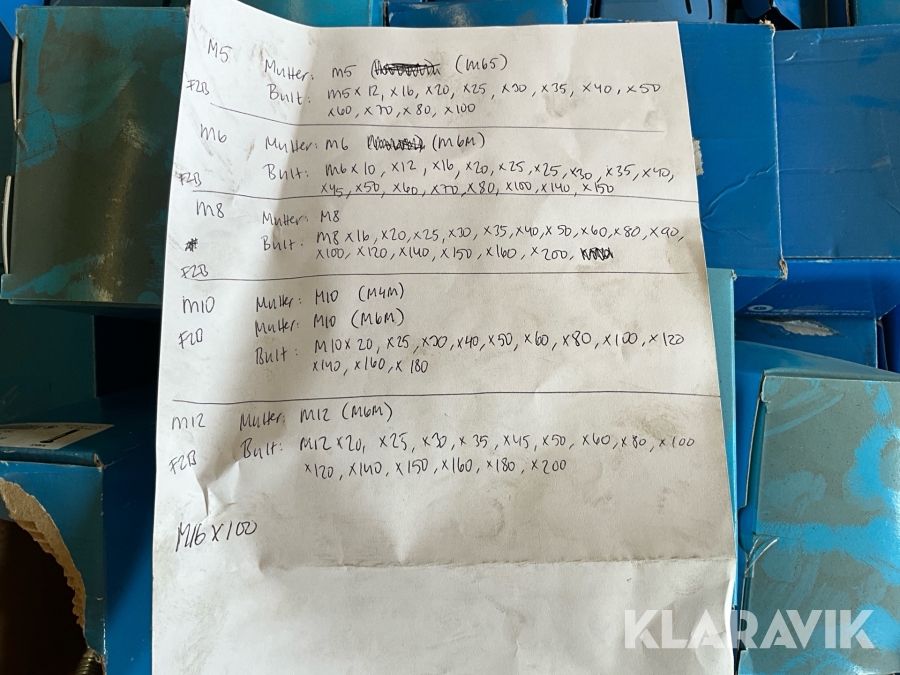 M5 Mutter: M5 (M65)
FZB Bult: M5x12, x16, x20, x25, x30, x35, x40, x50
x60, x70, x80, x100
M6 Mutter: M6 (M6M)
FZB Bult: M6x10, x12, x16, x20, x25, x25, x30, x35, x40,
x45, x50, x60, x70, x80, x100, x140, x150
M8 Mutter: M8
Bult: M8x16, x20, x25, x30, x35, x40, x50, x60, x80, x90,
FZB x100, x120, x140, x150, x160, x200,
M10 Mutter: M10 (M4M)
FZB Mutter: M10 (M6M)
Bult: M10x20, x25, x30, x40, x50, x60, x80, x100, x120
x140, x160, x180
M12 Mutter: M12 (M6M)
FZB Bult: M12x20, x25, x30, x35, x45, x50, x60, x80, x100
x120, x140, x150, x160, x180, x200
M16x100
KLARAVIK